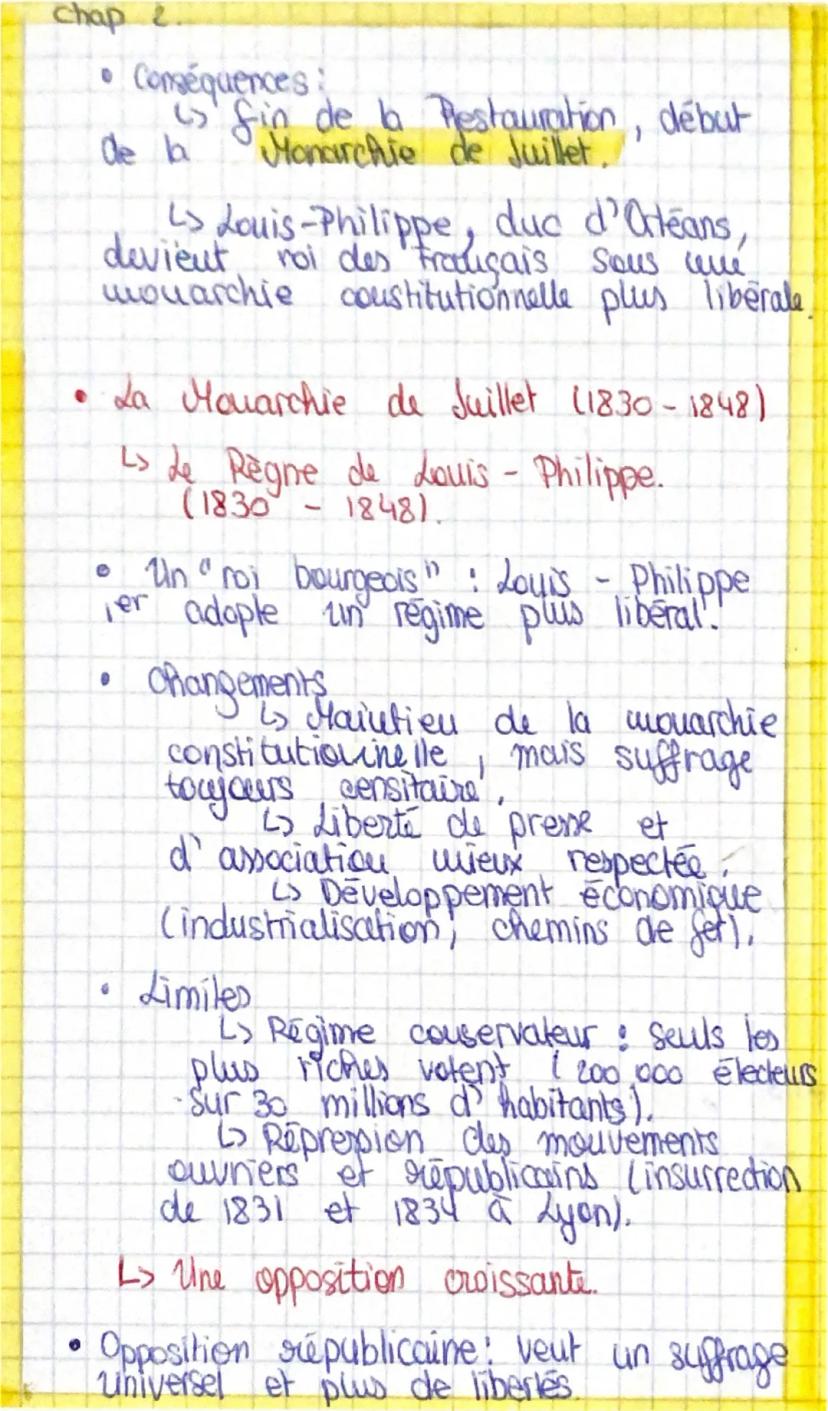 Chap 2.
• Conséquences :
↳ fin de la Restauration, début
de la Monarchie de Juillet.
↳ Louis-Philippe, duc d'Orléans,
devient roi des Français sous une
monarchie constitutionnelle plus libérale.
• La Monarchie de Juillet (1830 - 1848)
↳ Le Règne de Louis - Philippe.
(1830 - 1848).
• Un "roi bourgeois" : Louis - Philippe
1er adopte un régime plus libéral.
• Changements
↳ Maintien de la monarchie
constitutionnelle, mais suffrage
toujours censitaire.
↳ Liberté de presse et
d'association mieux respectée.
↳ Développement économique
(industrialisation, chemins de fer).
• Limites
↳ Régime conservateur : seuls les
plus riches votent (200 000 électeurs
sur 30 millions d'habitants).
↳ Répression des mouvements
ouvriers et républicains (insurrection
de 1831 et 1834 à Lyon).
↳ Une opposition croissante.
• Opposition républicaine : veut un suffrage
universel et plus de libertés.